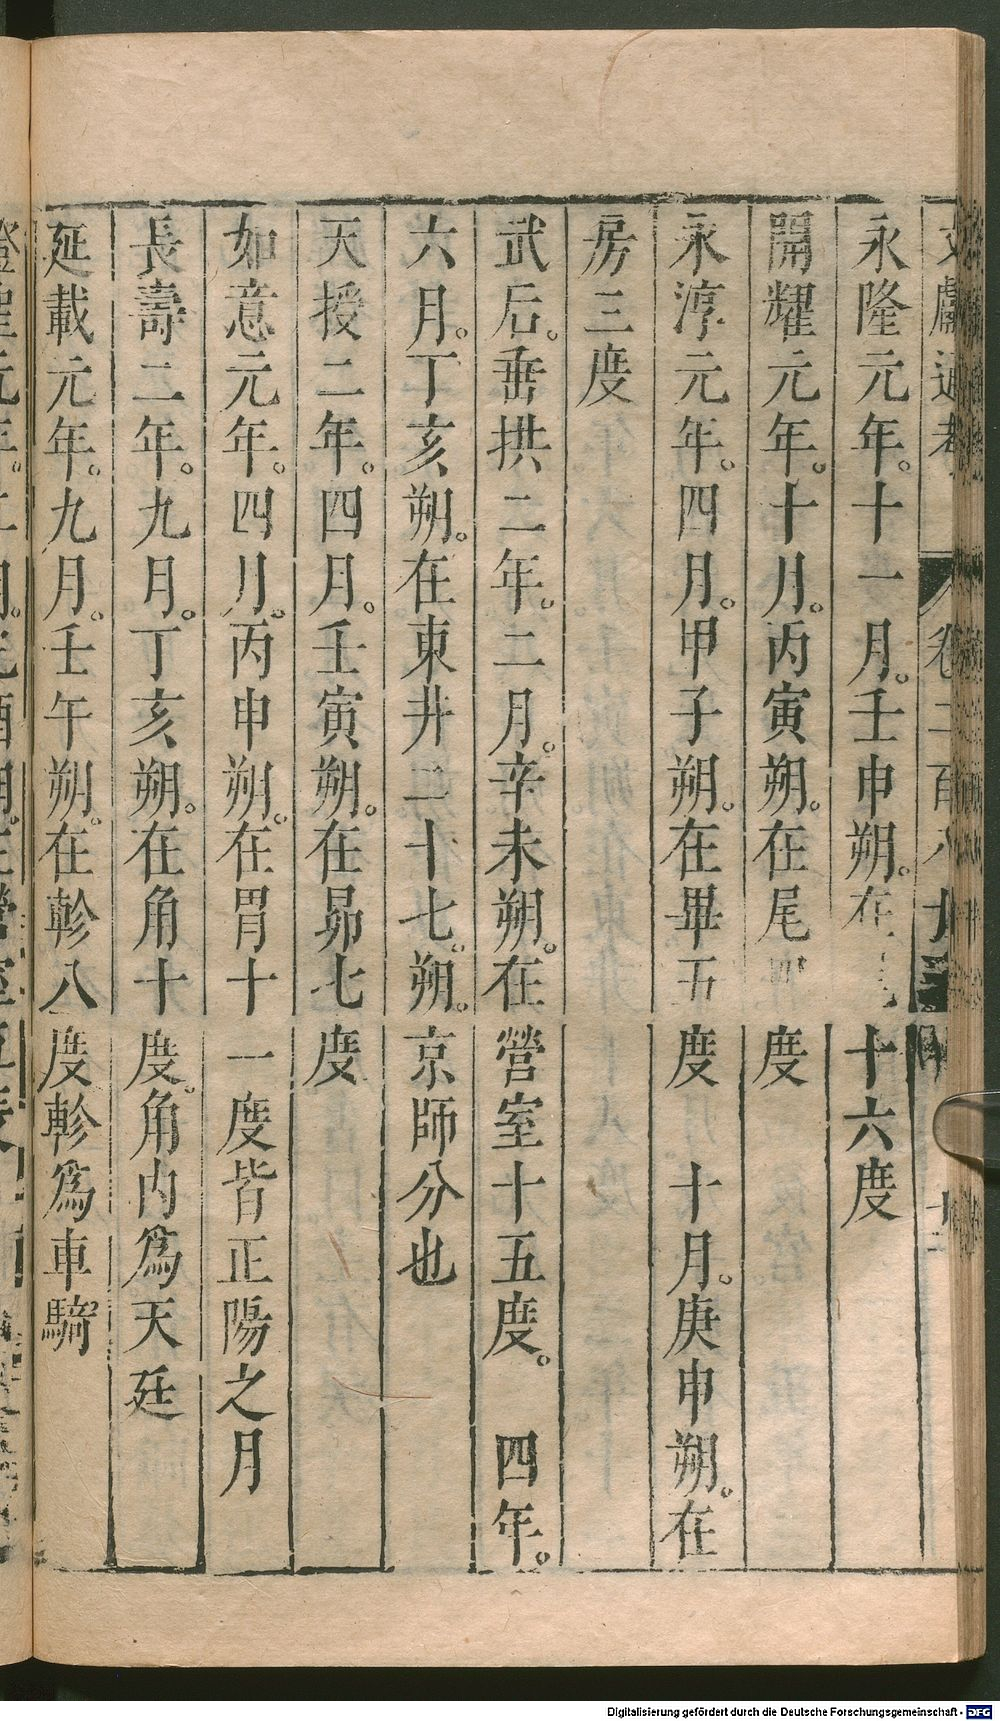 文獻通考　卷二百八十三
永隆元年。十一月。壬申朔。在尾十六度
開耀元年。十月。丙寅朔。在尾四度
永淳元年。四月。甲子朔。在畢五度　十月。庚申朔。在
房三度
武后。垂拱二年。二月。辛未朔。在營室十五度。　四年。
六月。丁亥朔。在東井二十七。朔。京師分也
天授二年。四月。壬寅朔。在昴七度
如意元年。四月。丙申朔。在胃十一度皆正陽之月
長壽二年。九月。丁亥朔。在角十度。角內爲天廷
延載元年。九月。壬午朔。在軫八度軫爲車騎
Digitalisierung gefördert durch die Deutsche Forschungsgemeinschaft - DFG